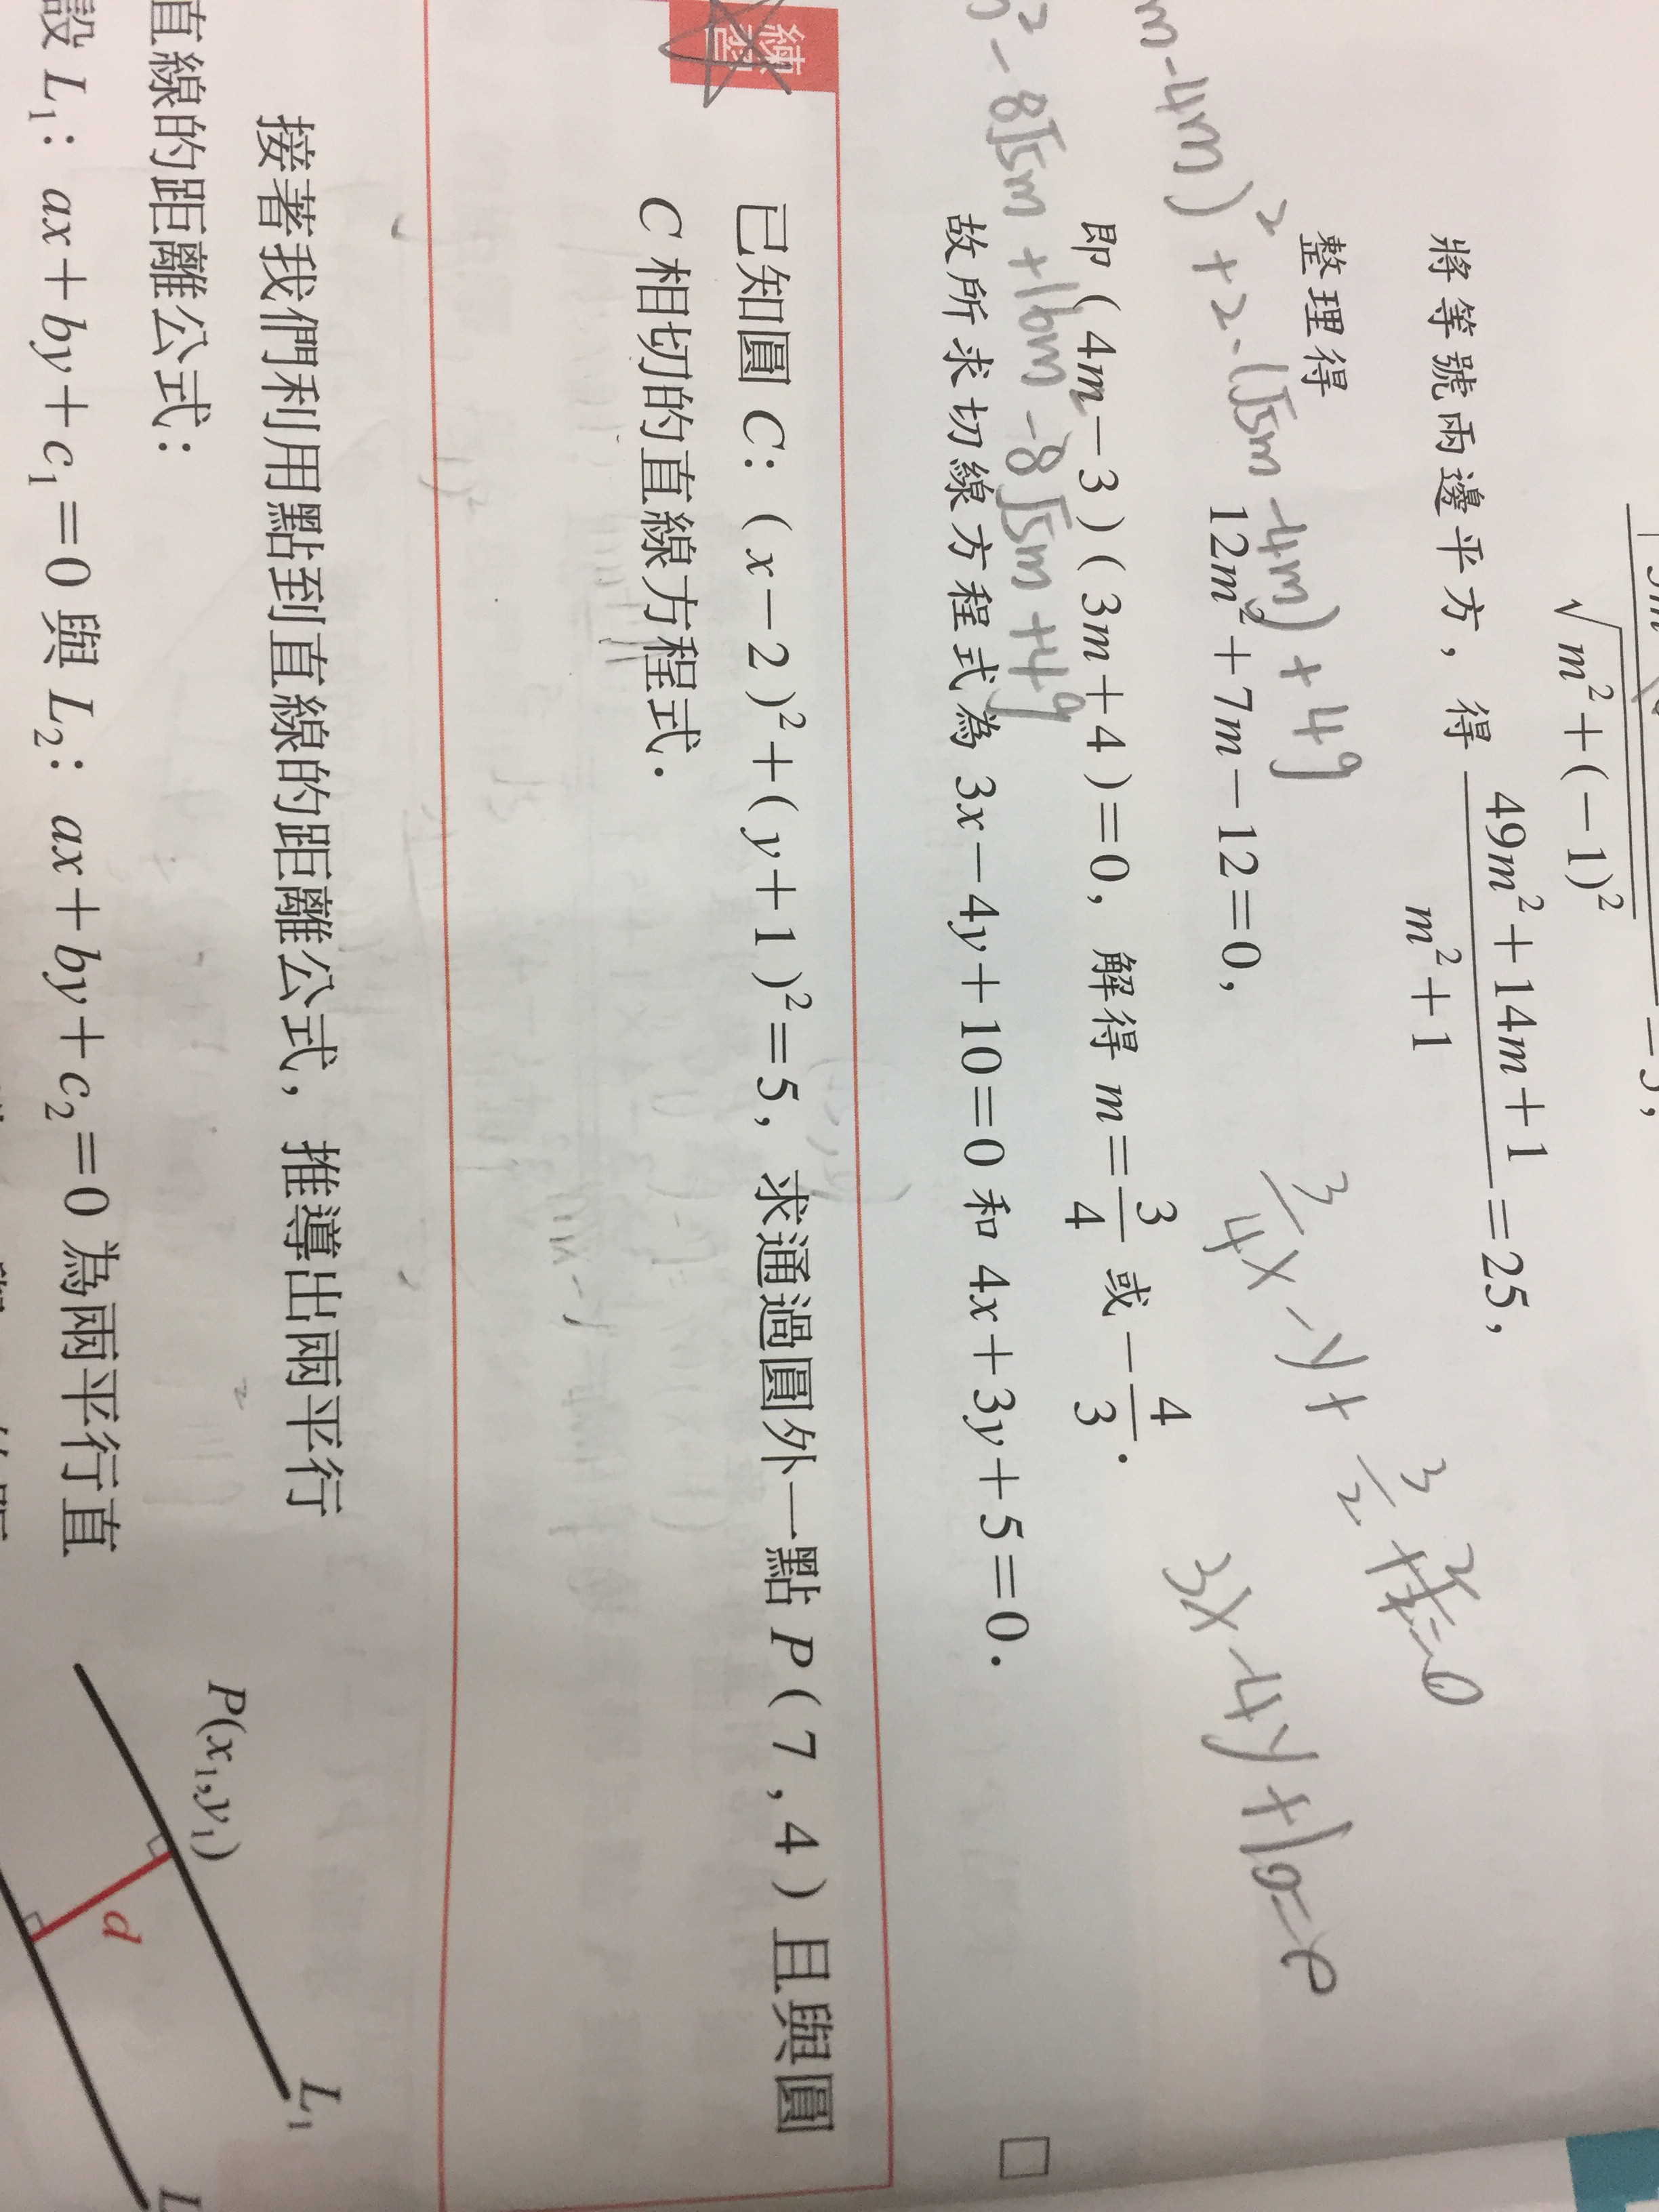 √m²+(-1)²
將等號兩邊平方，得 49m²+14m+1 / m²+1 =25，
整理得 12m²+7m-12=0，
即 (4m-3)(3m+4)=0，解得 m=3/4 或 -4/3．
故所求切線方程式為 3x-4y+10=0 和 4x+3y+5=0．
m-4m)²+2·(√5m-4m)+49
-8√5m+16m-8√5m+49
3/4x-y+
3x-4y+10=0
練習
已知圓 C：(x-2)²+(y+1)²=5，求通過圓外一點 P(7,4) 且與圓
C 相切的直線方程式．
接著我們利用點到直線的距離公式，推導出兩平行
直線的距離公式：
設 L₁：ax+by+c₁=0 與 L₂：ax+by+c₂=0 為兩平行直
P(x₁,y₁)
d
L₁
L